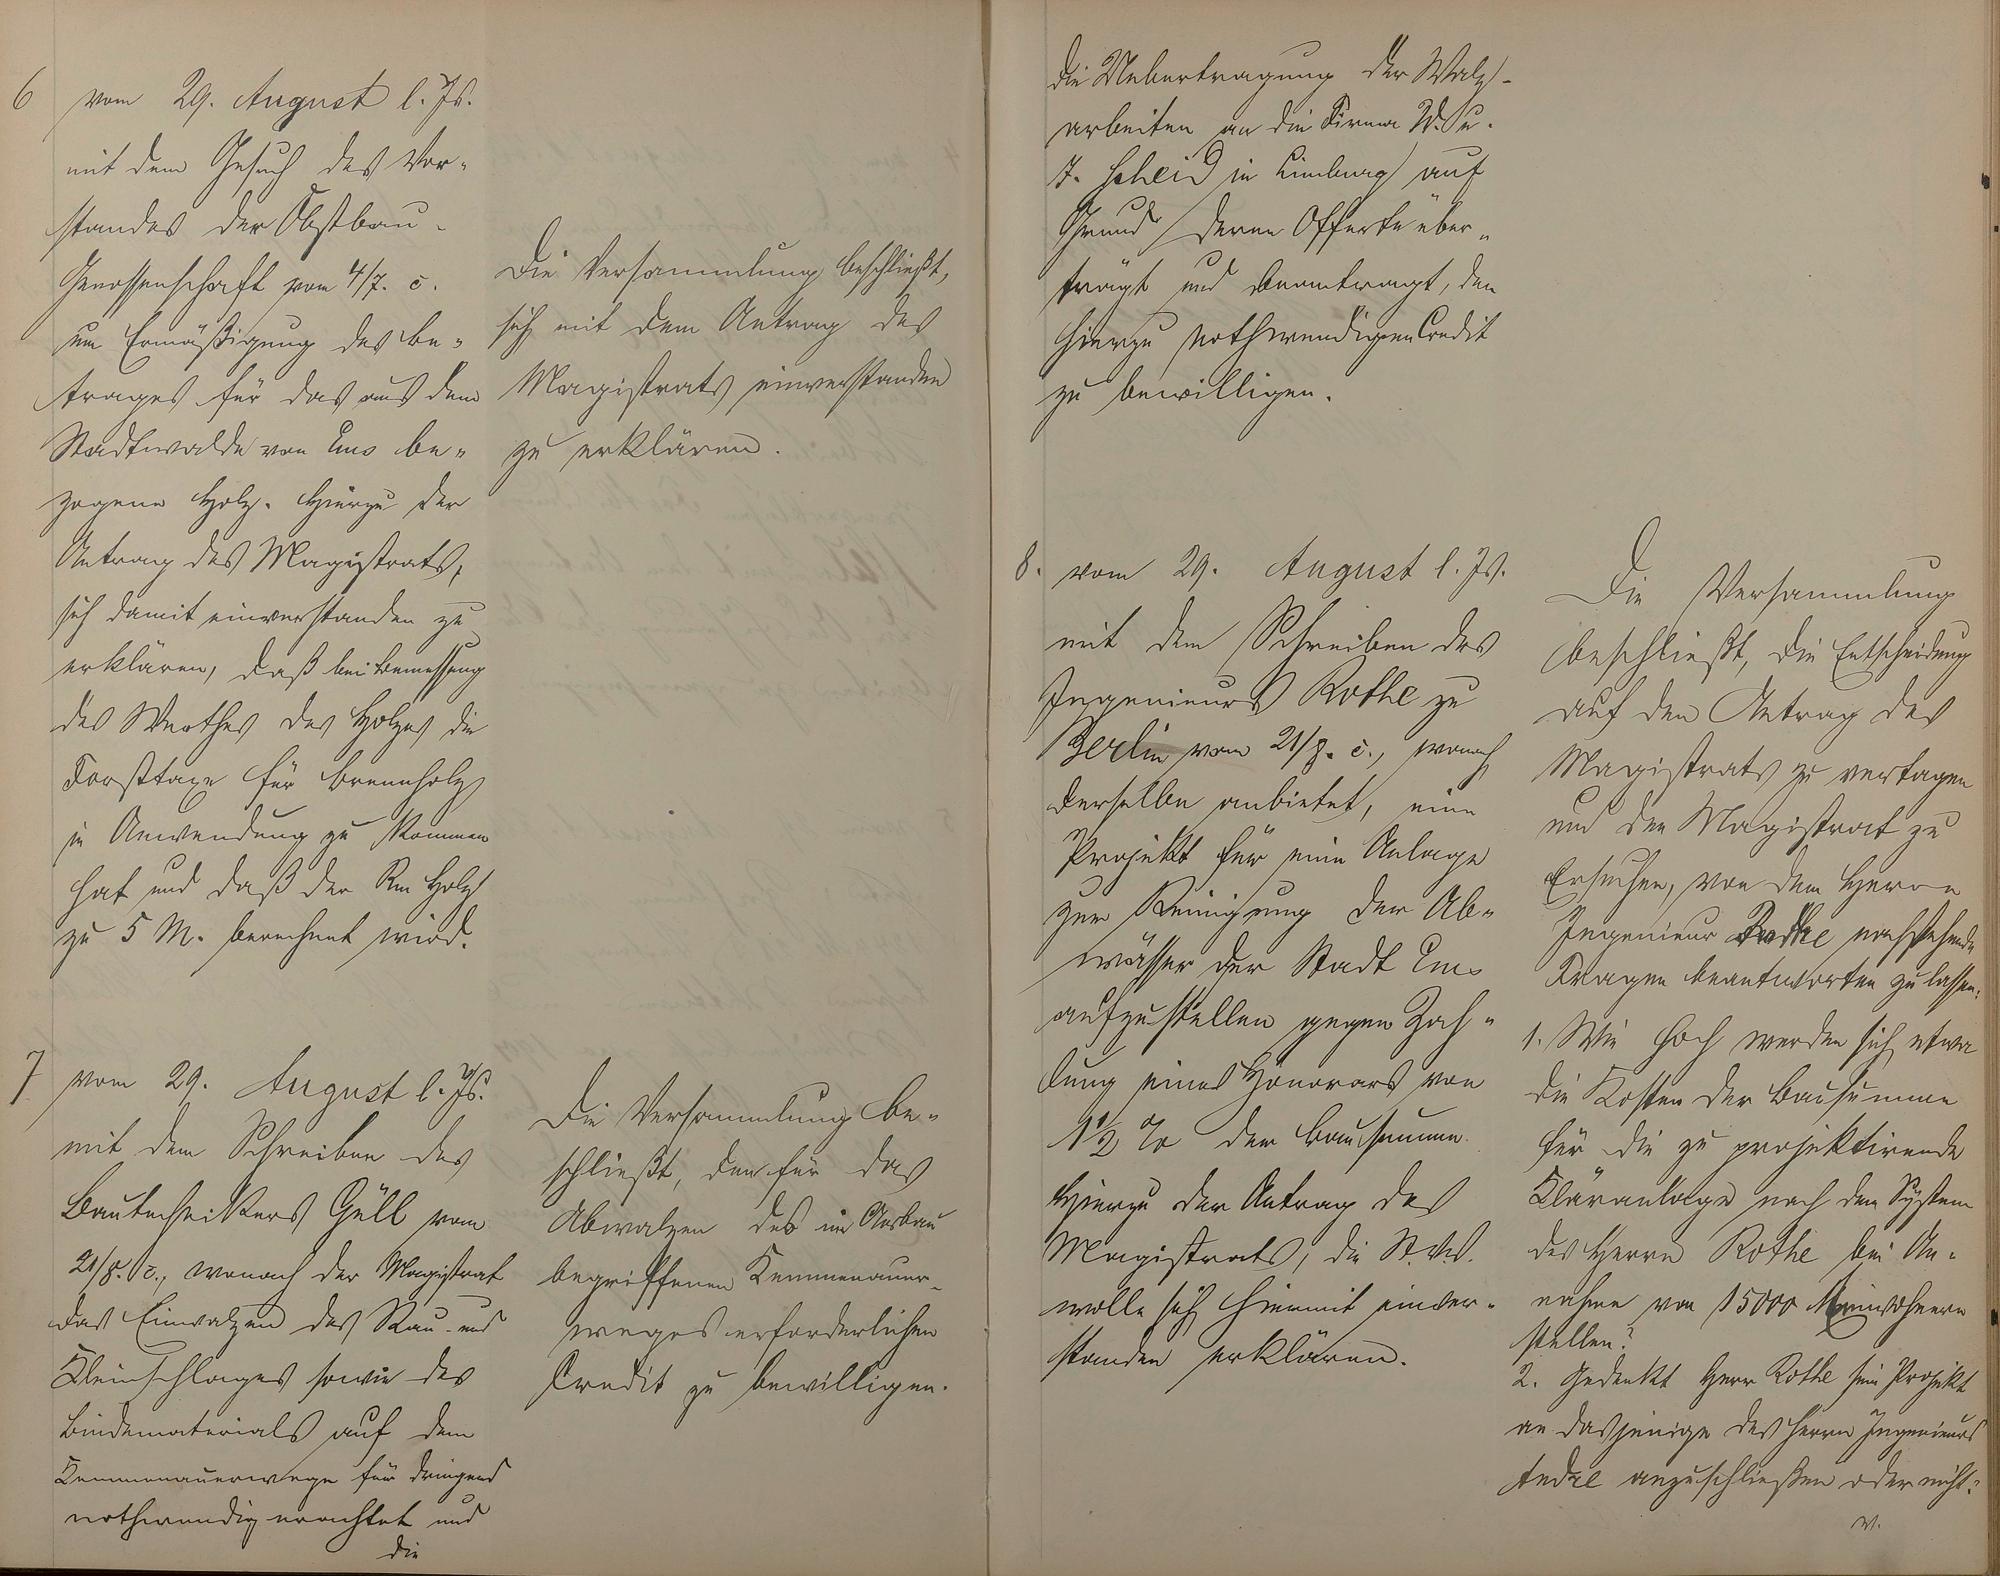 6 vom 29. August l. Js.
mit dem Gesuch des Vor-
standes der Obstbau-
Genossenschaft vom 4/7. c.
um Ermäßigung des Be-
trages für das aus dem
Stadtwalde von Ems be-
zogene Holz. Hierzu der
Antrag des Magistrats,
sich damit einverstanden zu
erklären, daß bei Bemessung
des Werthes des Holzes die
Forsttaxe für Brennholz
in Anwendung zu kommen
hat und daß der Rm Holz
zu 5 M. berechnet wird.
Die Versammlung beschließt,
sich mit dem Antrag des
Magistrats einverstanden
zu erklären.
7 vom 29. August l. Js.
mit dem Schreiben des
Bautechnikers Güll vom
21/8. c., wonach der Magistrat
das Einwalzen des Rau- und
Kleinschlages sowie des
Bindematerials auf dem
Kemmenauerwege für dringend
nothwendig erachtet und
die
Die Versammlung be-
schließt, den für das
Abwalzen des im Ausbau
begriffenen Kemmenauer-
weges erforderlichen
Credit zu bewilligen.
die Uebertragung der Walz-
arbeiten an die Firma W. u.
J. Scheid in Limburg auf
Grund deren Offerte über-
trägt und beantragt, den
hierzu nothwendigen Credit
zu bewilligen.
8. vom 29. August l. Js.
mit dem Schreiben des
Ingenieurs Rothe zu
Berlin vom 21/8. c., wonach
derselbe anbietet, ein
Projekt für eine Anlage
zur Reinigung der Ab-
wässer der Stadt Ems
aufzustellen gegen Zah-
lung eines Honorars von
1 1/2 % der Bausumme.
Hierzu der Antrag des
Magistrats, die St. V. V.
wolle sich hiermit einver-
standen erklären.
Die Versammlung
beschließt, die Entscheidung
auf den Antrag des
Magistrats zu vertagen
und den Magistrat zu
Ersuchen, von dem Herrn
Ingenieur Rothe nachstehende
Fragen beantworten zu lassen:
1. Wie hoch werden sich etwa
die Kosten der Bausumme
für die zu projektirende
Kläranlage nach dem System
des Herrn Rothe bei An-
nahme von 15000 Einwohnern
stellen?
2. Gedenkt Herr Rothe sein Projekt
an dasjenige des Herrn Ingenieurs
anzuschließen oder nicht?